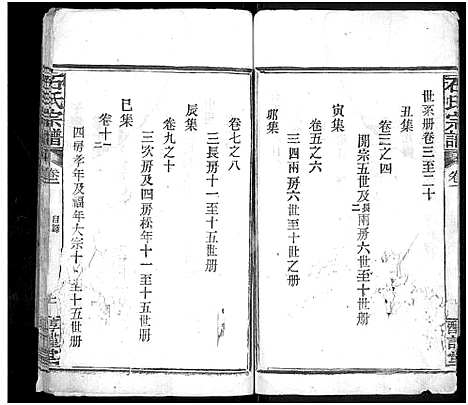 石氏宗譜
卷二
世系册卷三至二十
丑集
卷三之四
開宗五世及長兩房六世至十世册
寅集
卷五之六
三四兩房六世至十世之册
卯集
卷七之八
三長房十一至十五世册
辰集
卷九之十
三次房及四房松年十一至十五世册
巳集
卷十一二
四房孝年及福年大宗十一至十五世册
石氏宗譜
卷二
目錄